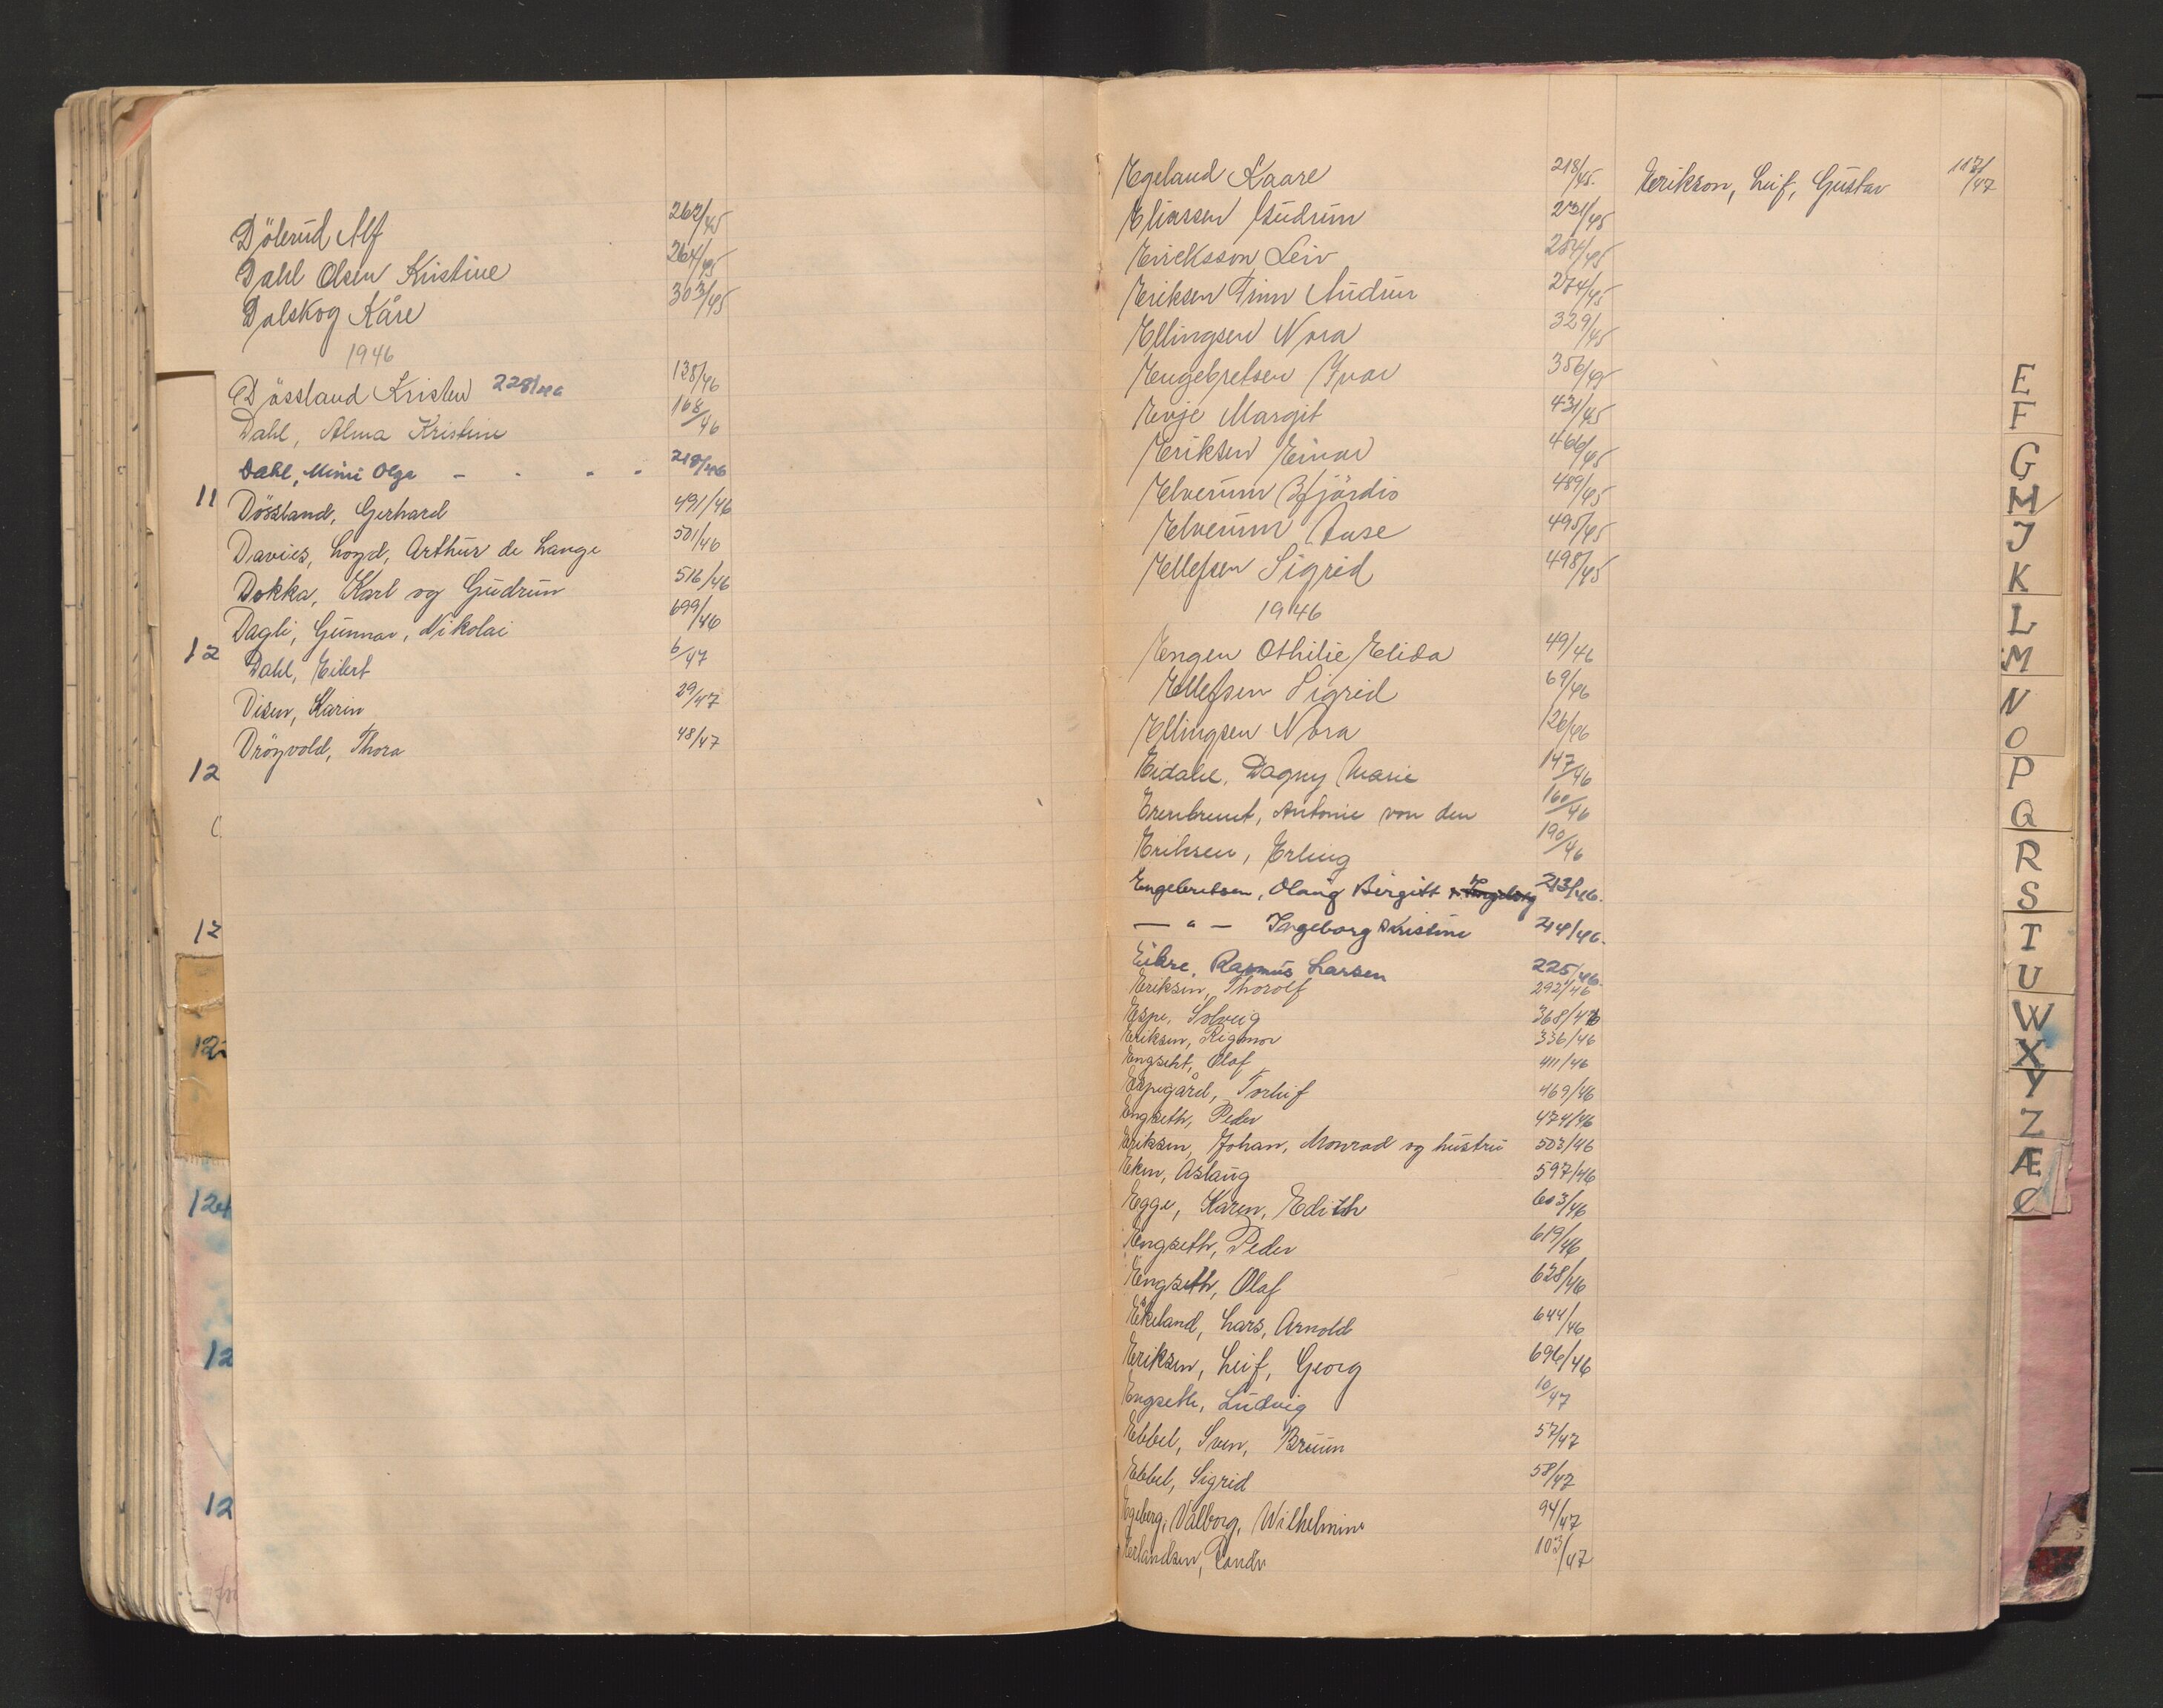 Dölerud Alf 262/45
Dahl Olsen Kristine 264/45
Dalskog Kåre 303/45
1946
Dössland Kristen 228/46 138/46
Dahl, Alma Kristine 168/46
Dahl, Mimi Olga - - - - 218/46
11 Dössland, Gerhard 491/46
Davies, Loyd, Arthur de Lange 501/46
Dokka, Karl og Gudrun 516/46
Dagli, Gunnar, Nikolai 699/46
12 Dahl, Eilert 6/47
Disen, Karin 29/47
Dröyvold, Thora 48/47
12
12
12
124
12
12
Egeland Kaare 218/45.
Eliassen Gudrun 231/45
Ericksson Leiv 254/45
Eriksen Finn Audun 274/45
Ellingsen Nora 329/45
Engebretsen Ivar 356/45
Evje Margit 431/45
Eriksen Einar 466/45
Elverum Hjördis 489/45
Elverum Aase 495/45
Ellefsen Sigrid 498/45
1946
Engen Othilie Elida 49/46
Ellefsen Sigrid 69/46
Ellingsen Nora 126/46
Eidahl, Dagny Marie 147/46
Erenbreut, Antonie von den 160/46
Eriksen, Erling 190/46
Engebretsen, Olaug Birgitt 213/46.
— " — Ingeborg Kristine 214/46.
Eikre, Rasmus Larsen 225/46.
Eriksen, Thorolf 292/46
Espe, Solveig 368/46
Eriksen, Rigmor 336/46
Engseht, Olaf 411/46
Espegård, Torleif 469/46
Engseth, Peder 474/46
Eriksen, Johan, Monrad og hustru 503/46
Eken, Aslaug 597/46
Egge, Karen, Edith 603/46
Engseth, Peder 619/46
Engseth, Olaf 628/46
Eskeland, Lars, Arnold 644/46
Eriksen, Leif, Georg 696/46
Engseth, Ludvig 10/47
Ebbel, Sven, Bruun 57/47
Ebbel, Sigrid 58/47
Egeberg, Valborg, Wilhelmine 94/47
Erlandsen, Randi 103/47
Erikson, Leif, Gustav 117/47
E
F
G
H
J
K
L
M
N
O
P
Q
R
S
T
U
W
X
Y
Z
Æ
Ø